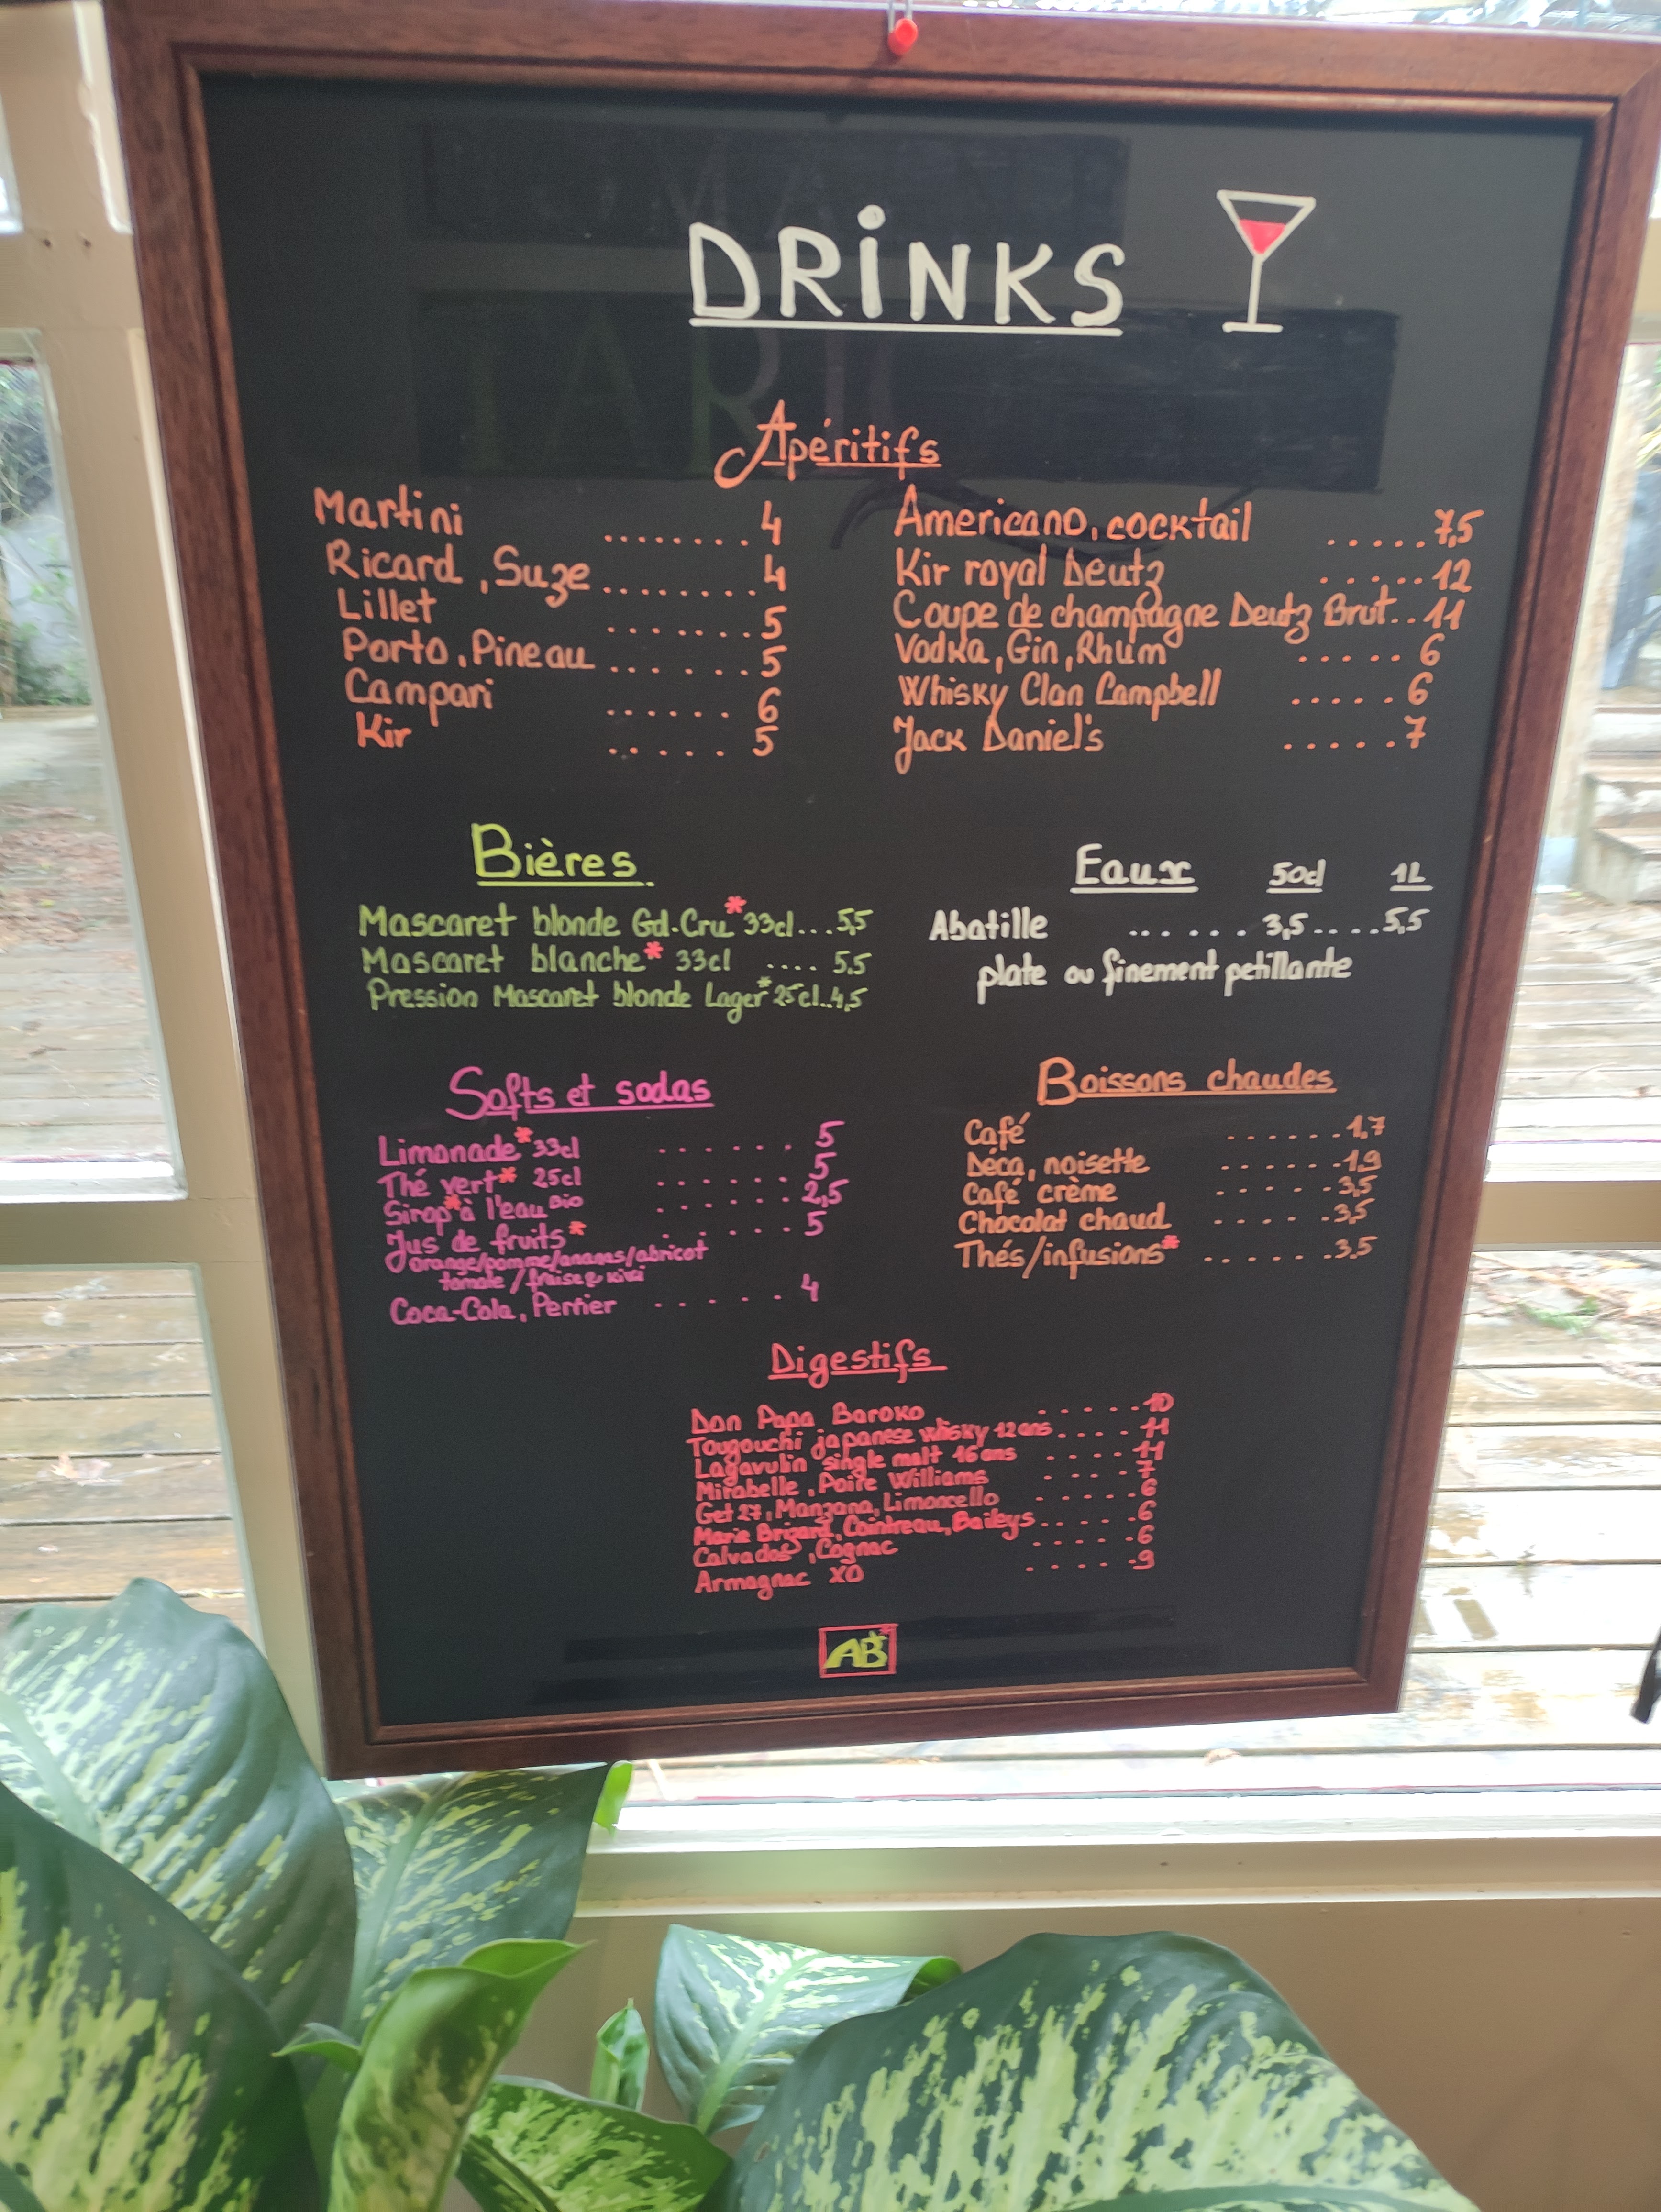 DRINKS
Apéritifs
Martini ........ 4
Ricard, Suze ........ 4
Lillet ....... 5
Porto, Pineau ....... 5
Campari ...... 6
Kir ..... 5
Americano, cocktail .....7,5
Kir royal Deutz .....12
Coupe de champagne Deutz Brut..11
Vodka, Gin, Rhum ..... 6
Whisky Clan Campbell ..... 6
Jack Daniel's .....7
Bières
Mascaret blonde Gd.Cru* 33cl...5,5
Mascaret blanche* 33cl .... 5,5
Pression Mascaret blonde Lager* 25cl..4,5
Eaux 50cl 1L
Abatille ...... 3,5....5,5
plate ou finement petillante
Softs et sodas
Limonade* 33cl ...... 5
Thé vert* 25cl ...... 5
Sirop* à l'eau Bio ...... 2,5
Jus de fruits* ..... 5
orange/pomme/ananas/abricot
tomate/fraise & kiwi
Coca-Cola, Perrier ..... 4
Boissons chaudes
Café ......1,7
Déca, noisette ......1,9
Café crème .....3,5
Chocolat chaud .....3,5
Thés/infusions* ......3,5
Digestifs
Don Papa Baroko .....10
Tougouchi japanese whisky 12 ans....11
Lagavulin single malt 16 ans ....11
Mirabelle, Poire Williams ....7
Get 27, Manzana, Limoncello .....6
Marie Brizard, Cointreau, Baileys.....6
Calvados, Cognac .....6
Armagnac XO .....9
AB*